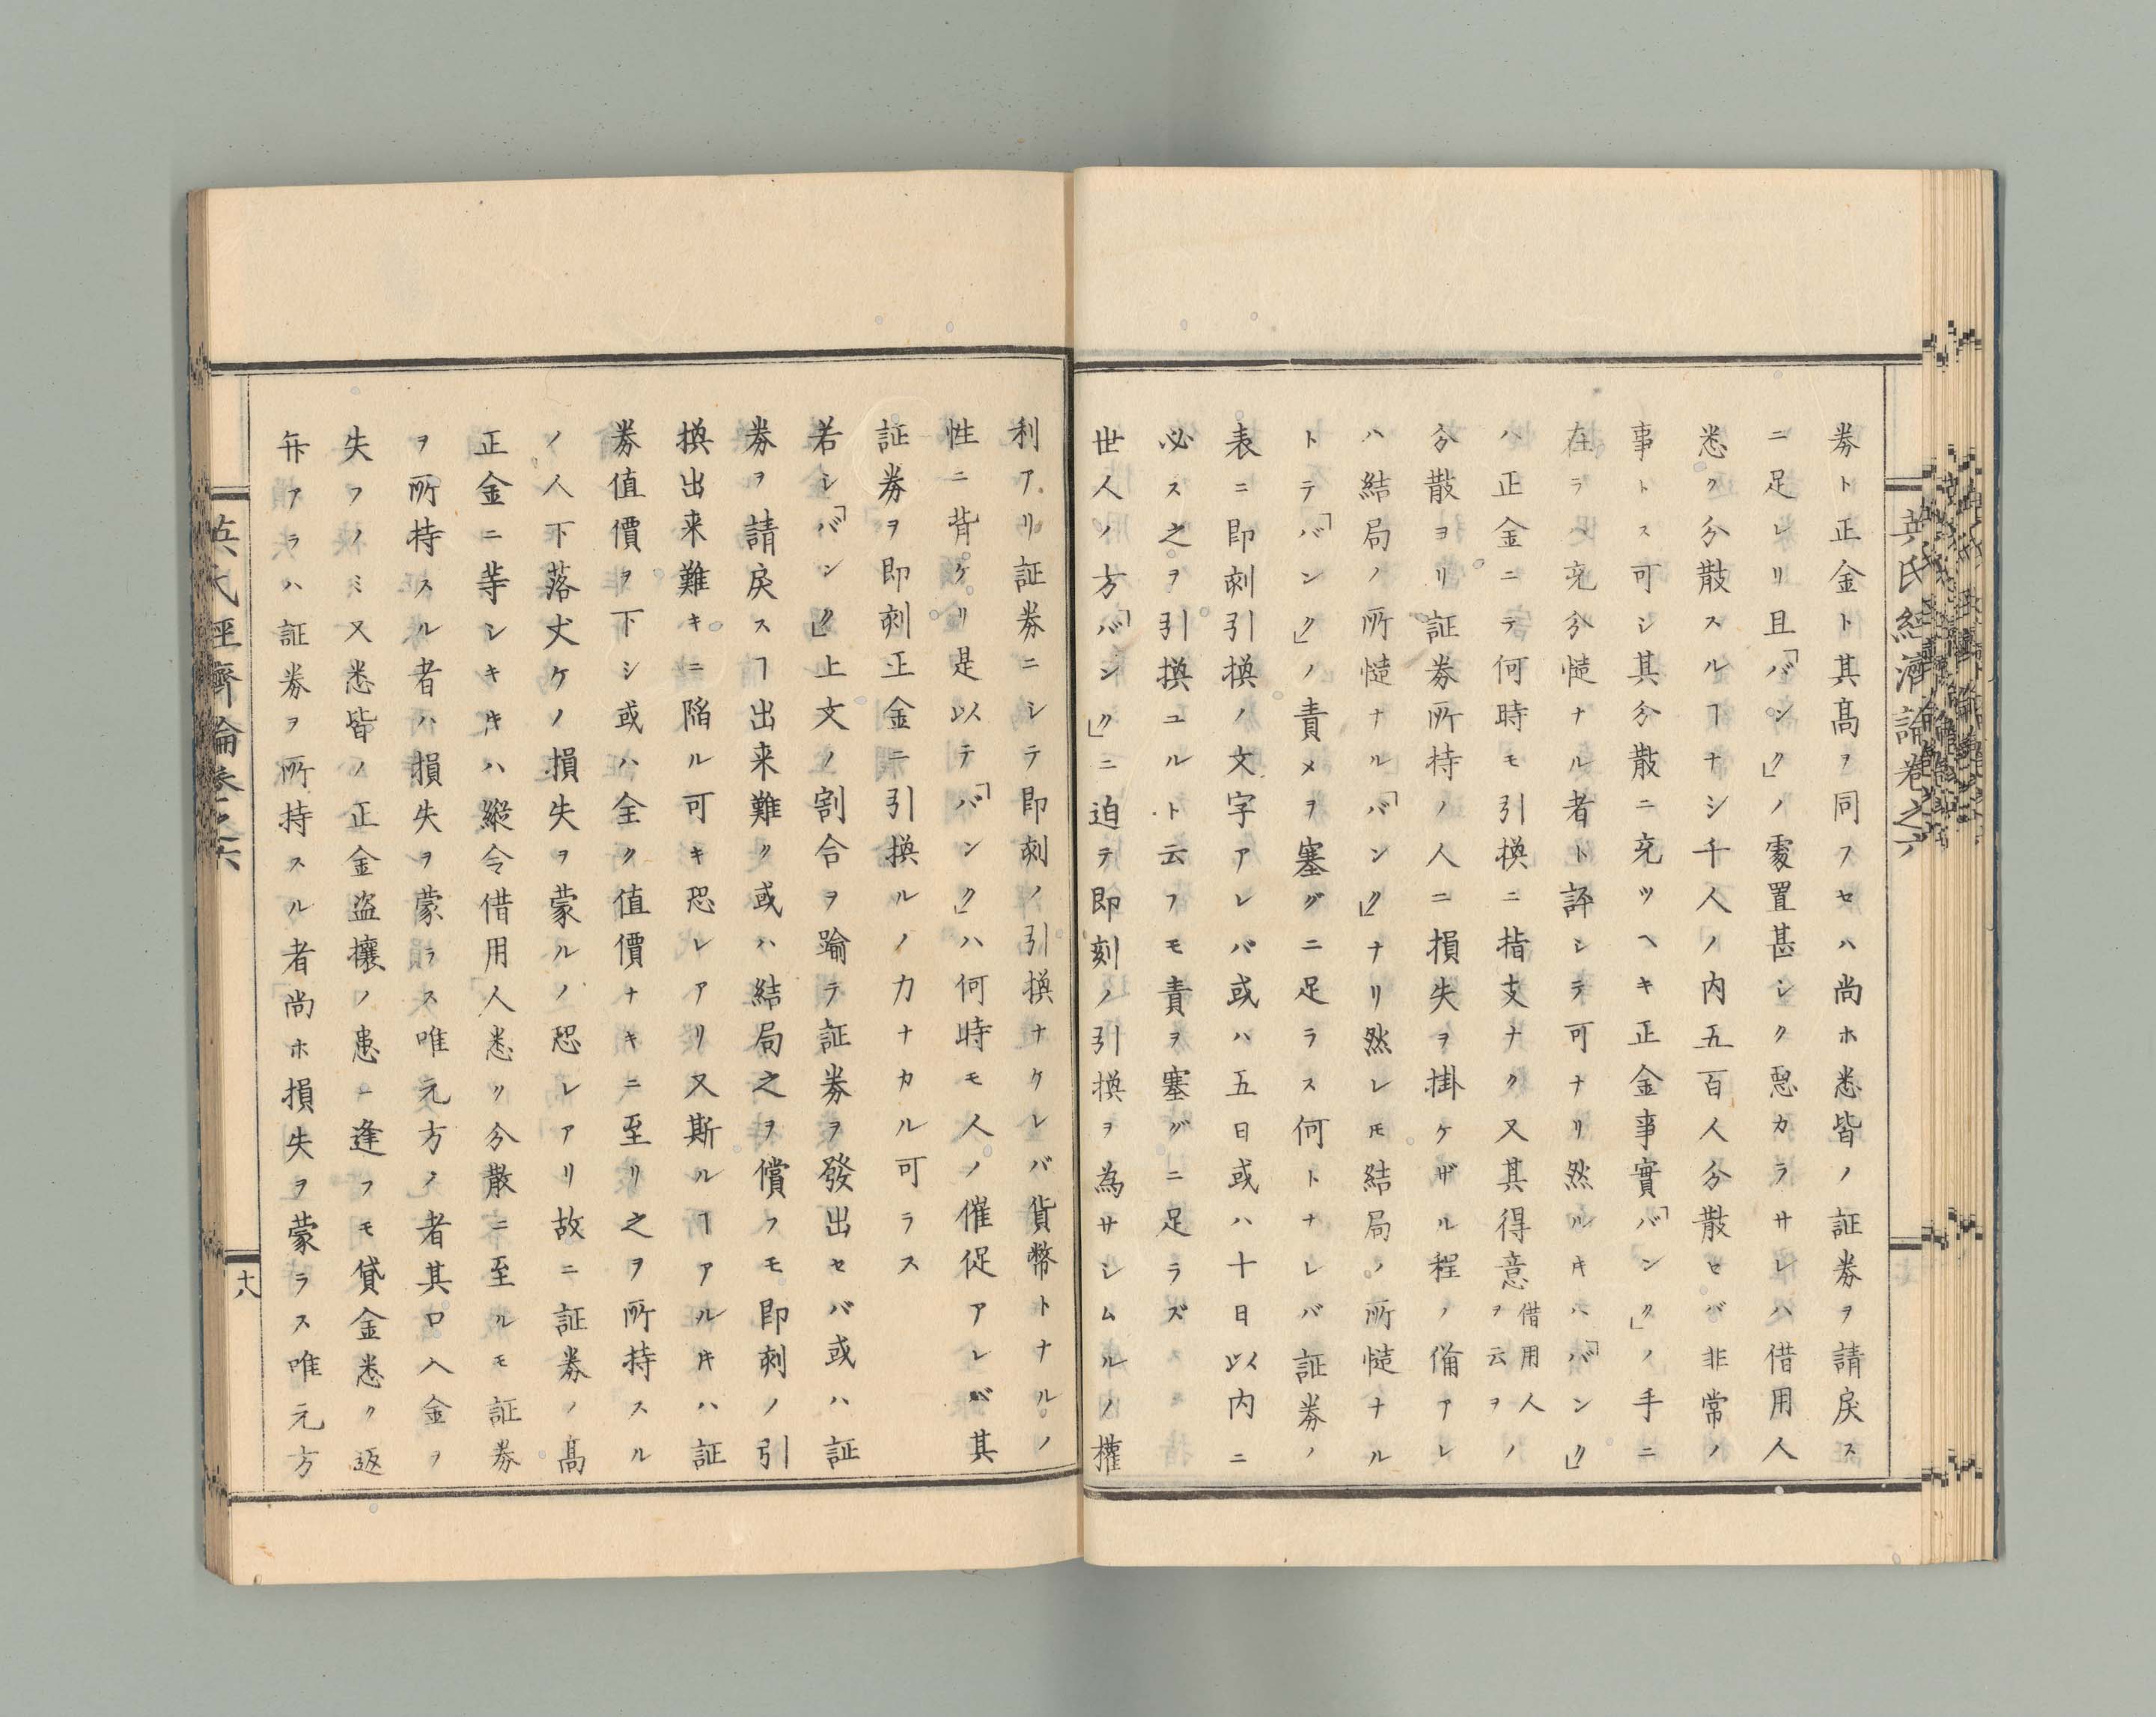 英氏經濟論卷之六
券ト正金ト其髙ヲ同フセハ尚ホ悉皆ノ証券ヲ請戻ス
ニ足レリ且「バンク」ノ處置甚シク惡カラサレハ借用人
悉ク分散スルヿナシ千人ノ内五百人分散セバ非常ノ
事トス可シ其分散ニ充ツヘキ正金事實「バンク」ノ手ニ
在ラバ充分慥ナル者ト評シテ可ナリ然ルキハ「バンク」
ハ正金ニテ何時モ引換ニ指支ナク又其得意借用人ヲ云ヲノ
分散ヨリ証券所持ノ人ニ損失ヲ掛ケザル程ノ俻アレ
ハ結局ノ所慥ナル「バンク」ナリ然レモ結局ノ所慥ナル
トテ「バンク」ノ責メヲ塞グニ足ラス何トナレバ証券ノ
表ニ即刻引換ノ文字アレバ或ハ五日或ハ十日以内ニ
必ス之ヲ引換ユルト云フモ責ヲ塞グニ足ラズ
世人ノ方「バンク」ニ迫テ即刻ノ引換ヲ為サシムルノ權
利アリ証券ニシテ即刻ノ引換ナケレバ貨幣トナルノ
性ニ背ケリ是以テ「バンク」ハ何時モ人ノ催促アレバ其
証券ヲ即刻正金ニ引換ルノ力ナカル可ラス
若シ「バンク」上文ノ割合ヲ踰テ証券ヲ發出セバ或ハ証
券ヲ請戻スヿ出来難ク或ハ結局之ヲ償フモ即刻ノ引
換出来難キニ陷ル可キ恐レアリ又斯ルヿアルキハ証
券値價ヲ下シ或ハ全ク値價ナキニ至リ之ヲ所持スル
ノ人下落丈ケノ損失ヲ蒙ルノ恐レアリ故ニ証券ノ髙
正金ニ等シキキハ縱令借用人悉ク分散ニ至ルモ証券
ヲ所持スル者ハ損失ヲ蒙ラス唯元方ノ者其口入金ヲ
失フノミ又悉皆ノ正金盗攘ノ患ニ逢フモ貸金悉ク返
弁アラハ証券ヲ所持スル者尚ホ損失ヲ蒙ラス唯元方
英氏經濟論卷之六
十八